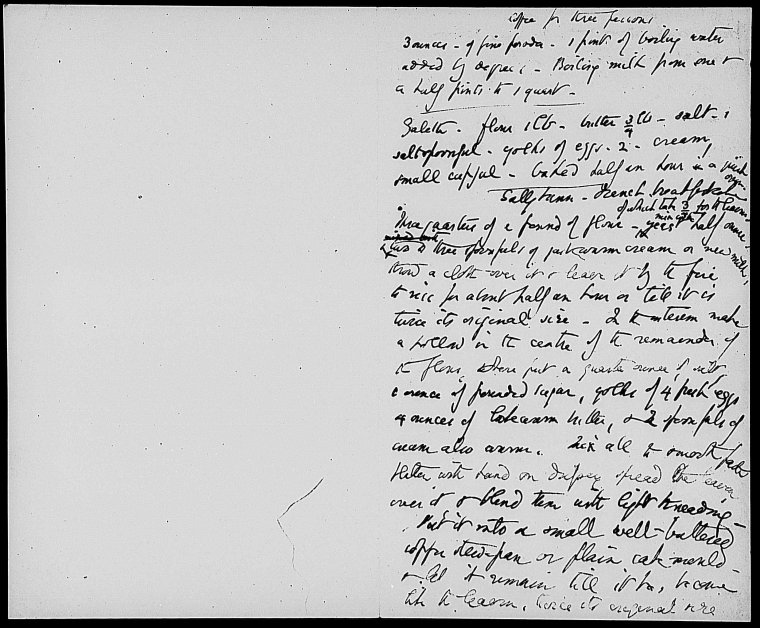 Coffee for three persons
3 ounces - of fine powder - 1 pint of boiling water
added by degrees - Boiling milk from one &
a half pints to 1 quart -
Galette - flour 1 lb - butter 3/4 lb - salt - 1
saltspoonful - yolks of eggs - 2 - cream,
small cupful - baked half an hour in a quick
oven -
Sally Lunn - French breakfast
of which take 3/4 for the leaven
Three quarters of a pound of flour - half ounce
yeast
two or three spoonfuls of just warm cream or new milk,
throw a cloth over it & leave it by the fire
to rise for about half an hour or till it is
twice its original size - In the interim make
a hollow in the centre of the remainder of
the flour, & put a quarter ounce of salt
1 ounce of pounded sugar, yolks of 4 fresh eggs
4 ounces of lukewarm butter, & 2 spoonfuls of
cream also warm. Mix all to smooth paste
with hand on spread the leaven
over it & blend them with light kneading -
Put it into a small well-buttered
copper stewpan or plain cake mould
& let it remain till it has become
like the leaven, twice its original size